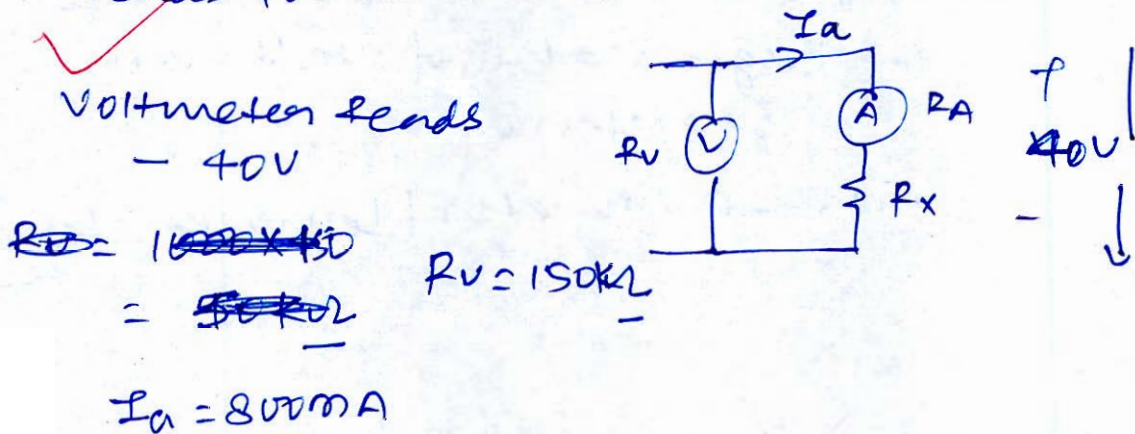 Voltmeter reads
- 40V
Rv = 150kΩ
Ia = 800mA
Ia
V
Rv
A
RA
Rx
+
40V
-